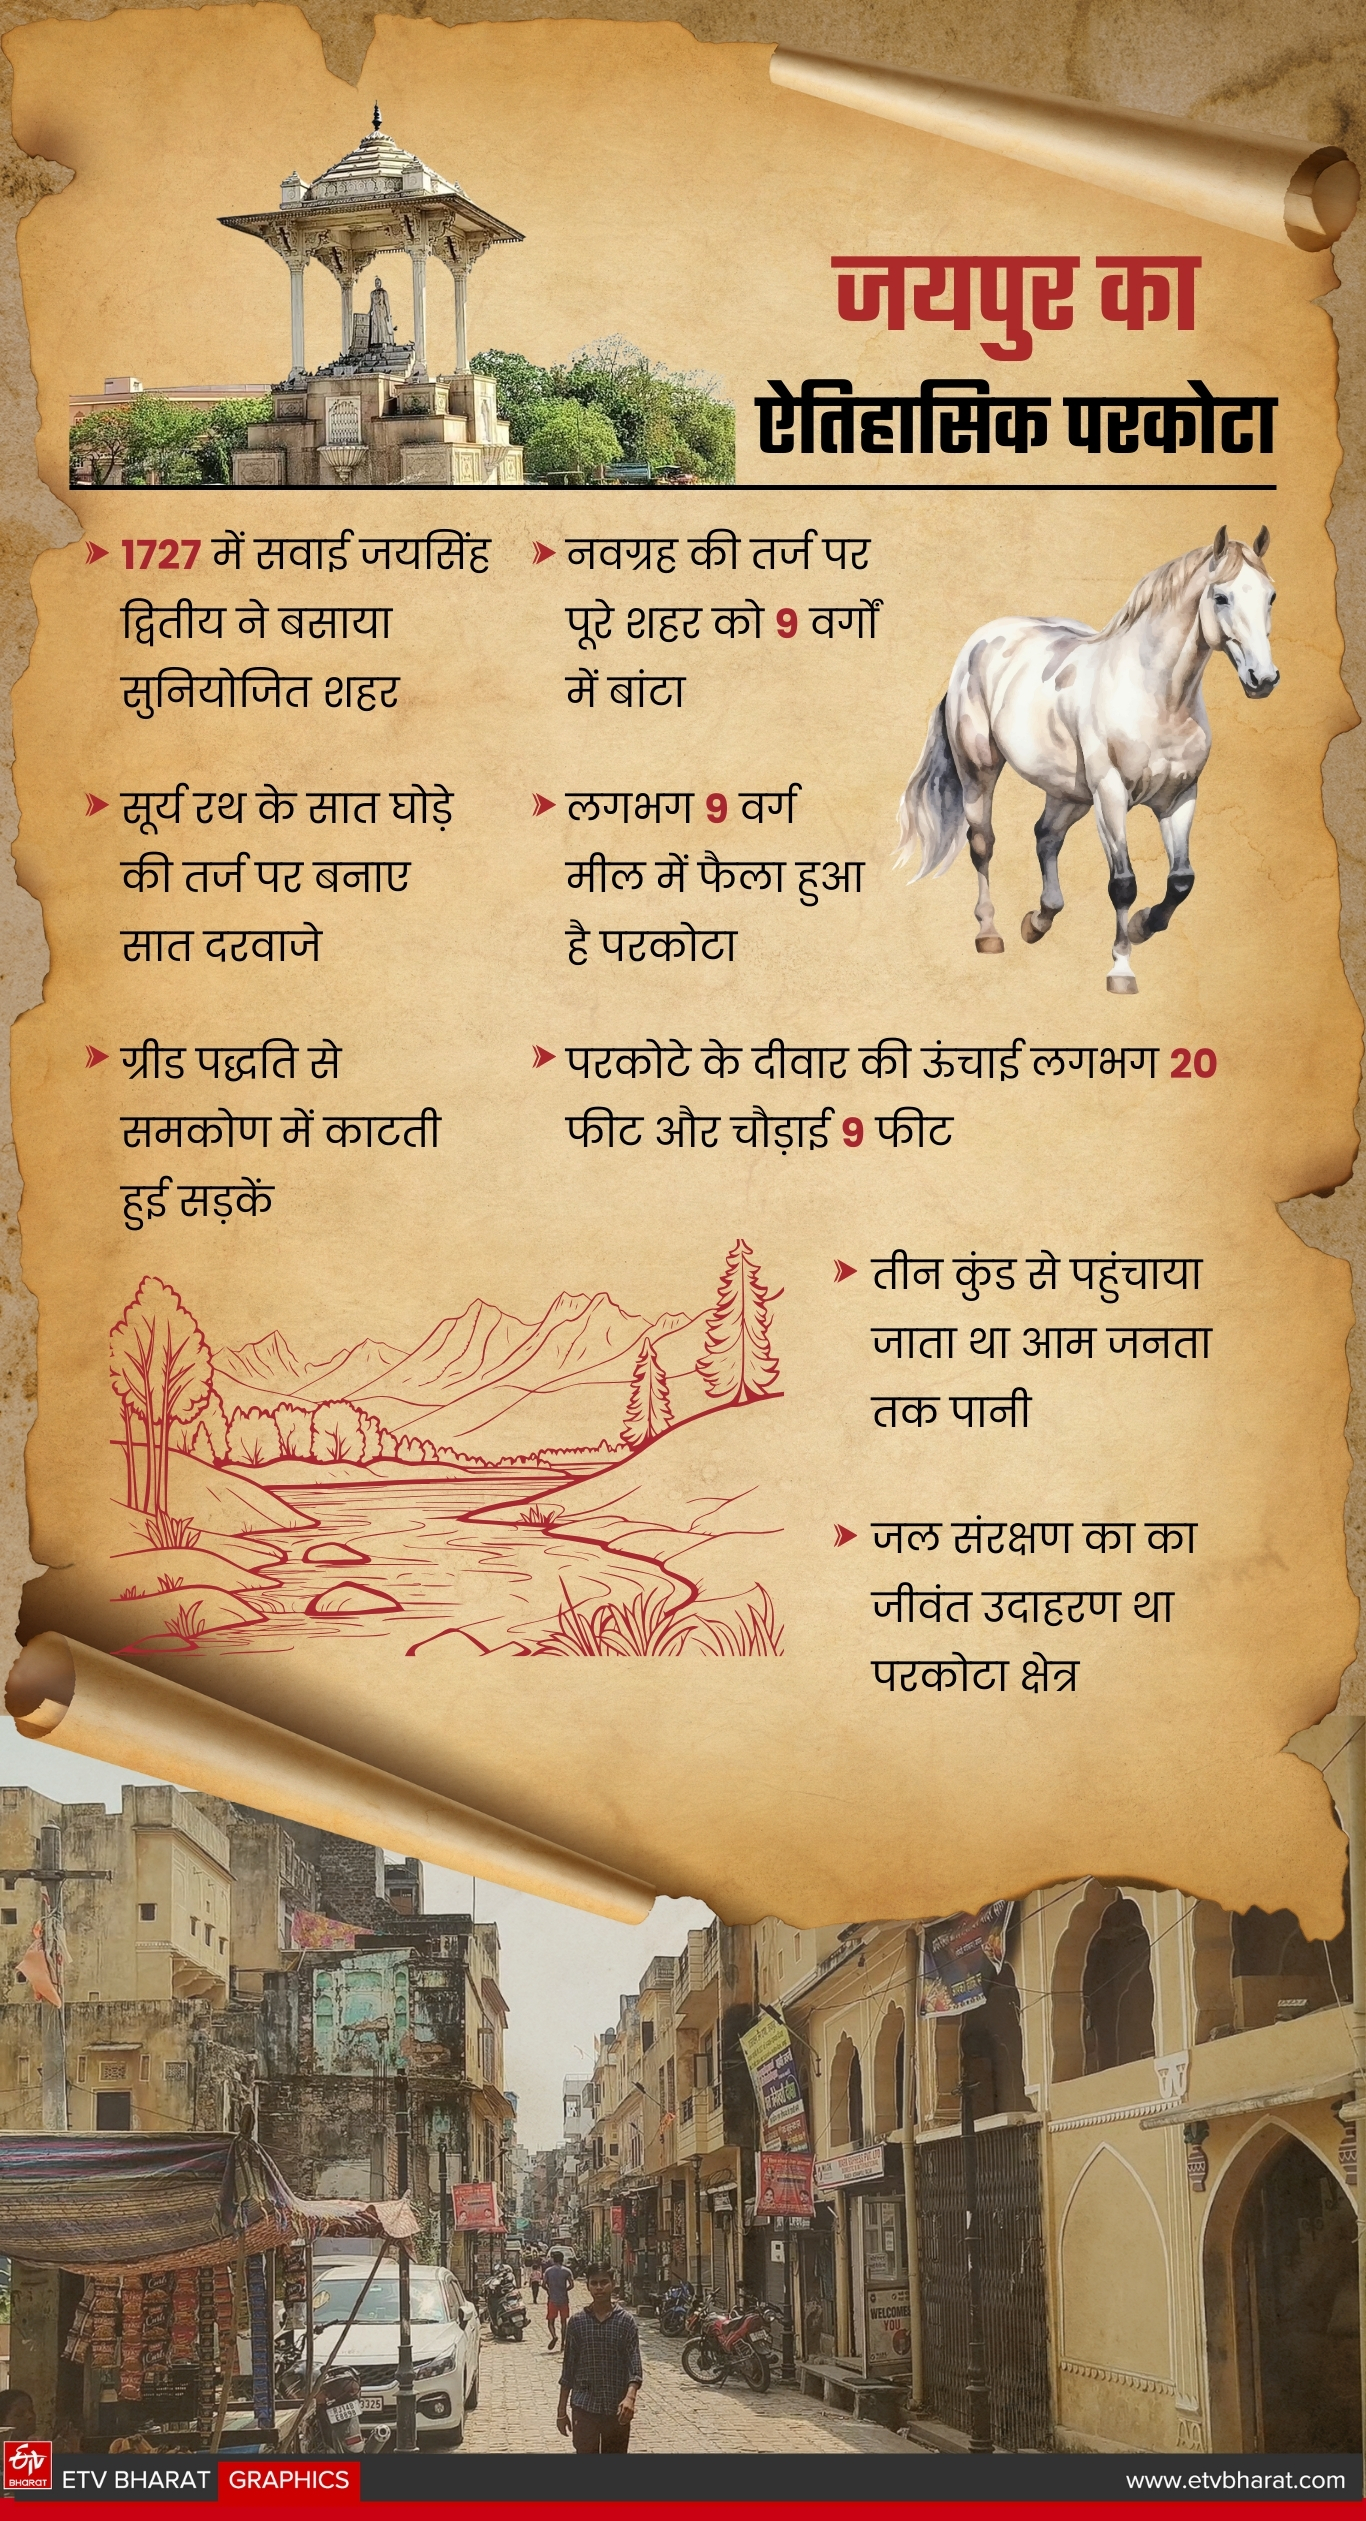 जयपुर का
ऐतिहासिक परकोटा
1727 में सवाई जयसिंह
द्वितीय ने बसाया
सुनियोजित शहर
सूर्य रथ के सात घोड़े
की तर्ज पर बनाए
सात दरवाजे
ग्रीड पद्धति से
समकोण में काटती
हुई सड़कें
नवग्रह की तर्ज पर
पूरे शहर को 9 वर्गों
में बांटा
लगभग 9 वर्ग
मील में फैला हुआ
है परकोटा
परकोटे के दीवार की ऊंचाई लगभग 20
फीट और चौड़ाई 9 फीट
तीन कुंड से पहुंचाया
जाता था आम जनता
तक पानी
जल संरक्षण का का
जीवंत उदाहरण था
परकोटा क्षेत्र
WELCOME
YOU
ETV BHARAT
ETV BHARAT GRAPHICS
www.etvbharat.com